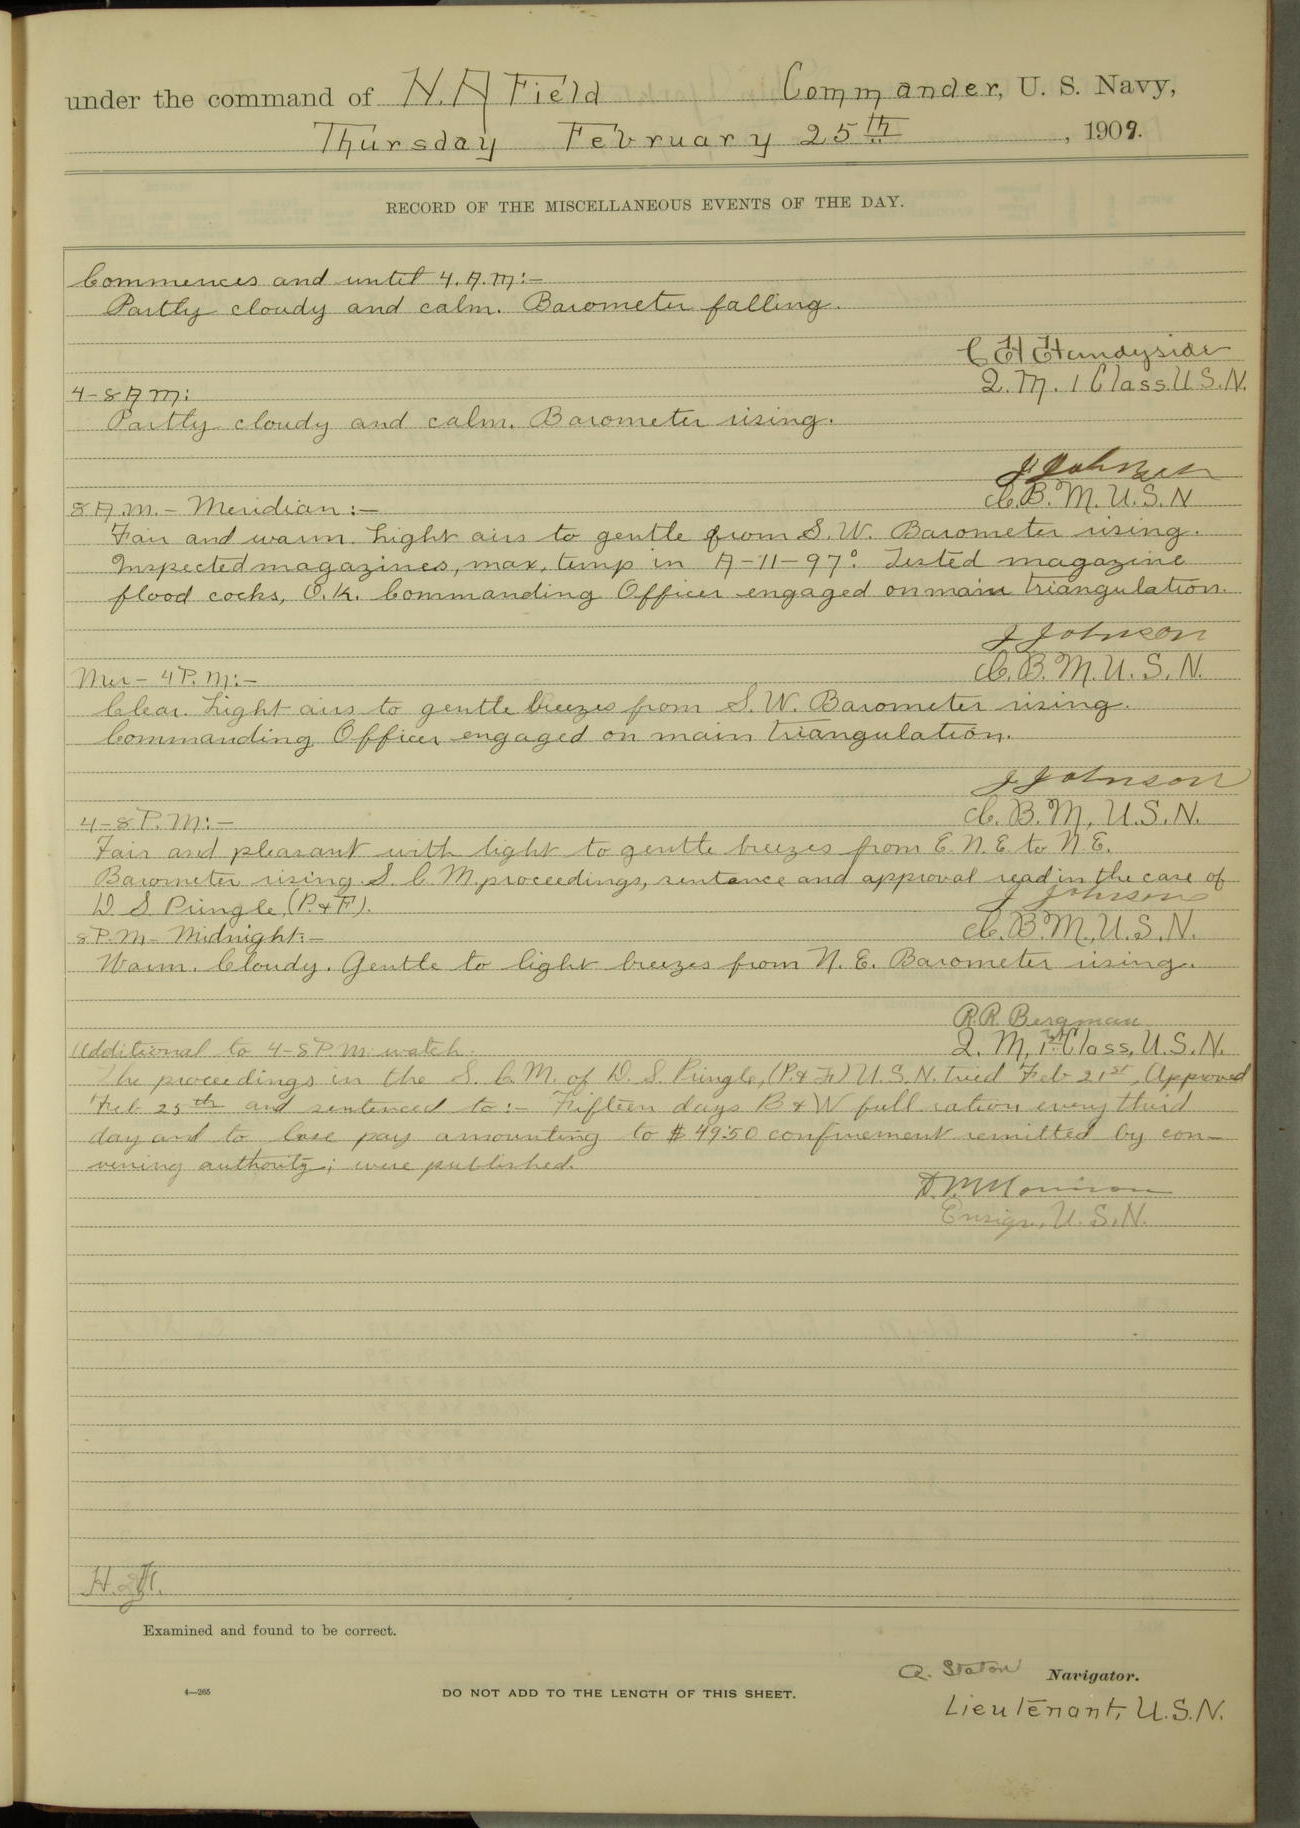 under the command of H. A Field Commander, U. S. Navy,
Thursday February 25th, 1909.
RECORD OF THE MISCELLANEOUS EVENTS OF THE DAY.
Commences and until 4. A. M:-
Partly cloudy and calm. Barometer falling.
C H Handyside
4-8 A M:
Q. M. 1 Class. U S. N.
Partly cloudy and calm. Barometer rising.
J Johnson
8 A. M. - Meridian:-
C. B. M. U. S. N
Fair and warm. Light airs to gentle from S. W. Barometer rising.
Inspected magazines, max, temp in A-11-97°. Tested magazine
flood cocks, O. K. Commanding Officer engaged on main triangulation.
J Johnson
Mer - 4 P. M:-
C. B. M. U. S. N.
Clear. Light airs to gentle breezes from S. W. Barometer rising.
Commanding Officer engaged on main triangulation.
J Johnson
4-8 P. M:-
C. B. M, U. S. N.
Fair and pleasant with light to gentle breezes from E. N. E. to N. E.
Barometer rising. S. C. M. proceedings, sentence and approval read in the case of
D S Pringle, (P. & F).
J Johnson
8 P. M - Midnight:-
C. B. M., U. S. N.
Warm. Cloudy. Gentle to light breezes from N. E. Barometer rising.
R. R. Bergman
Additional to 4-8 P. M. watch.
Q. M, 1st Class, U. S. N.
The proceedings in the S. C. M. of D. S. Pringle, (P. & F.) U. S. N. tried Feb 21st, Approved
Feb 25th and sentenced to:- Fifteen days B & W full ration every third
day and to lose pay amounting to $49.50 confinement remitted by con-
vening authority; were published.
Ensign, U. S. N.
Examined and found to be correct.
A. Staton Navigator.
4—265
DO NOT ADD TO THE LENGTH OF THIS SHEET.
Lieutenant, U. S. N.